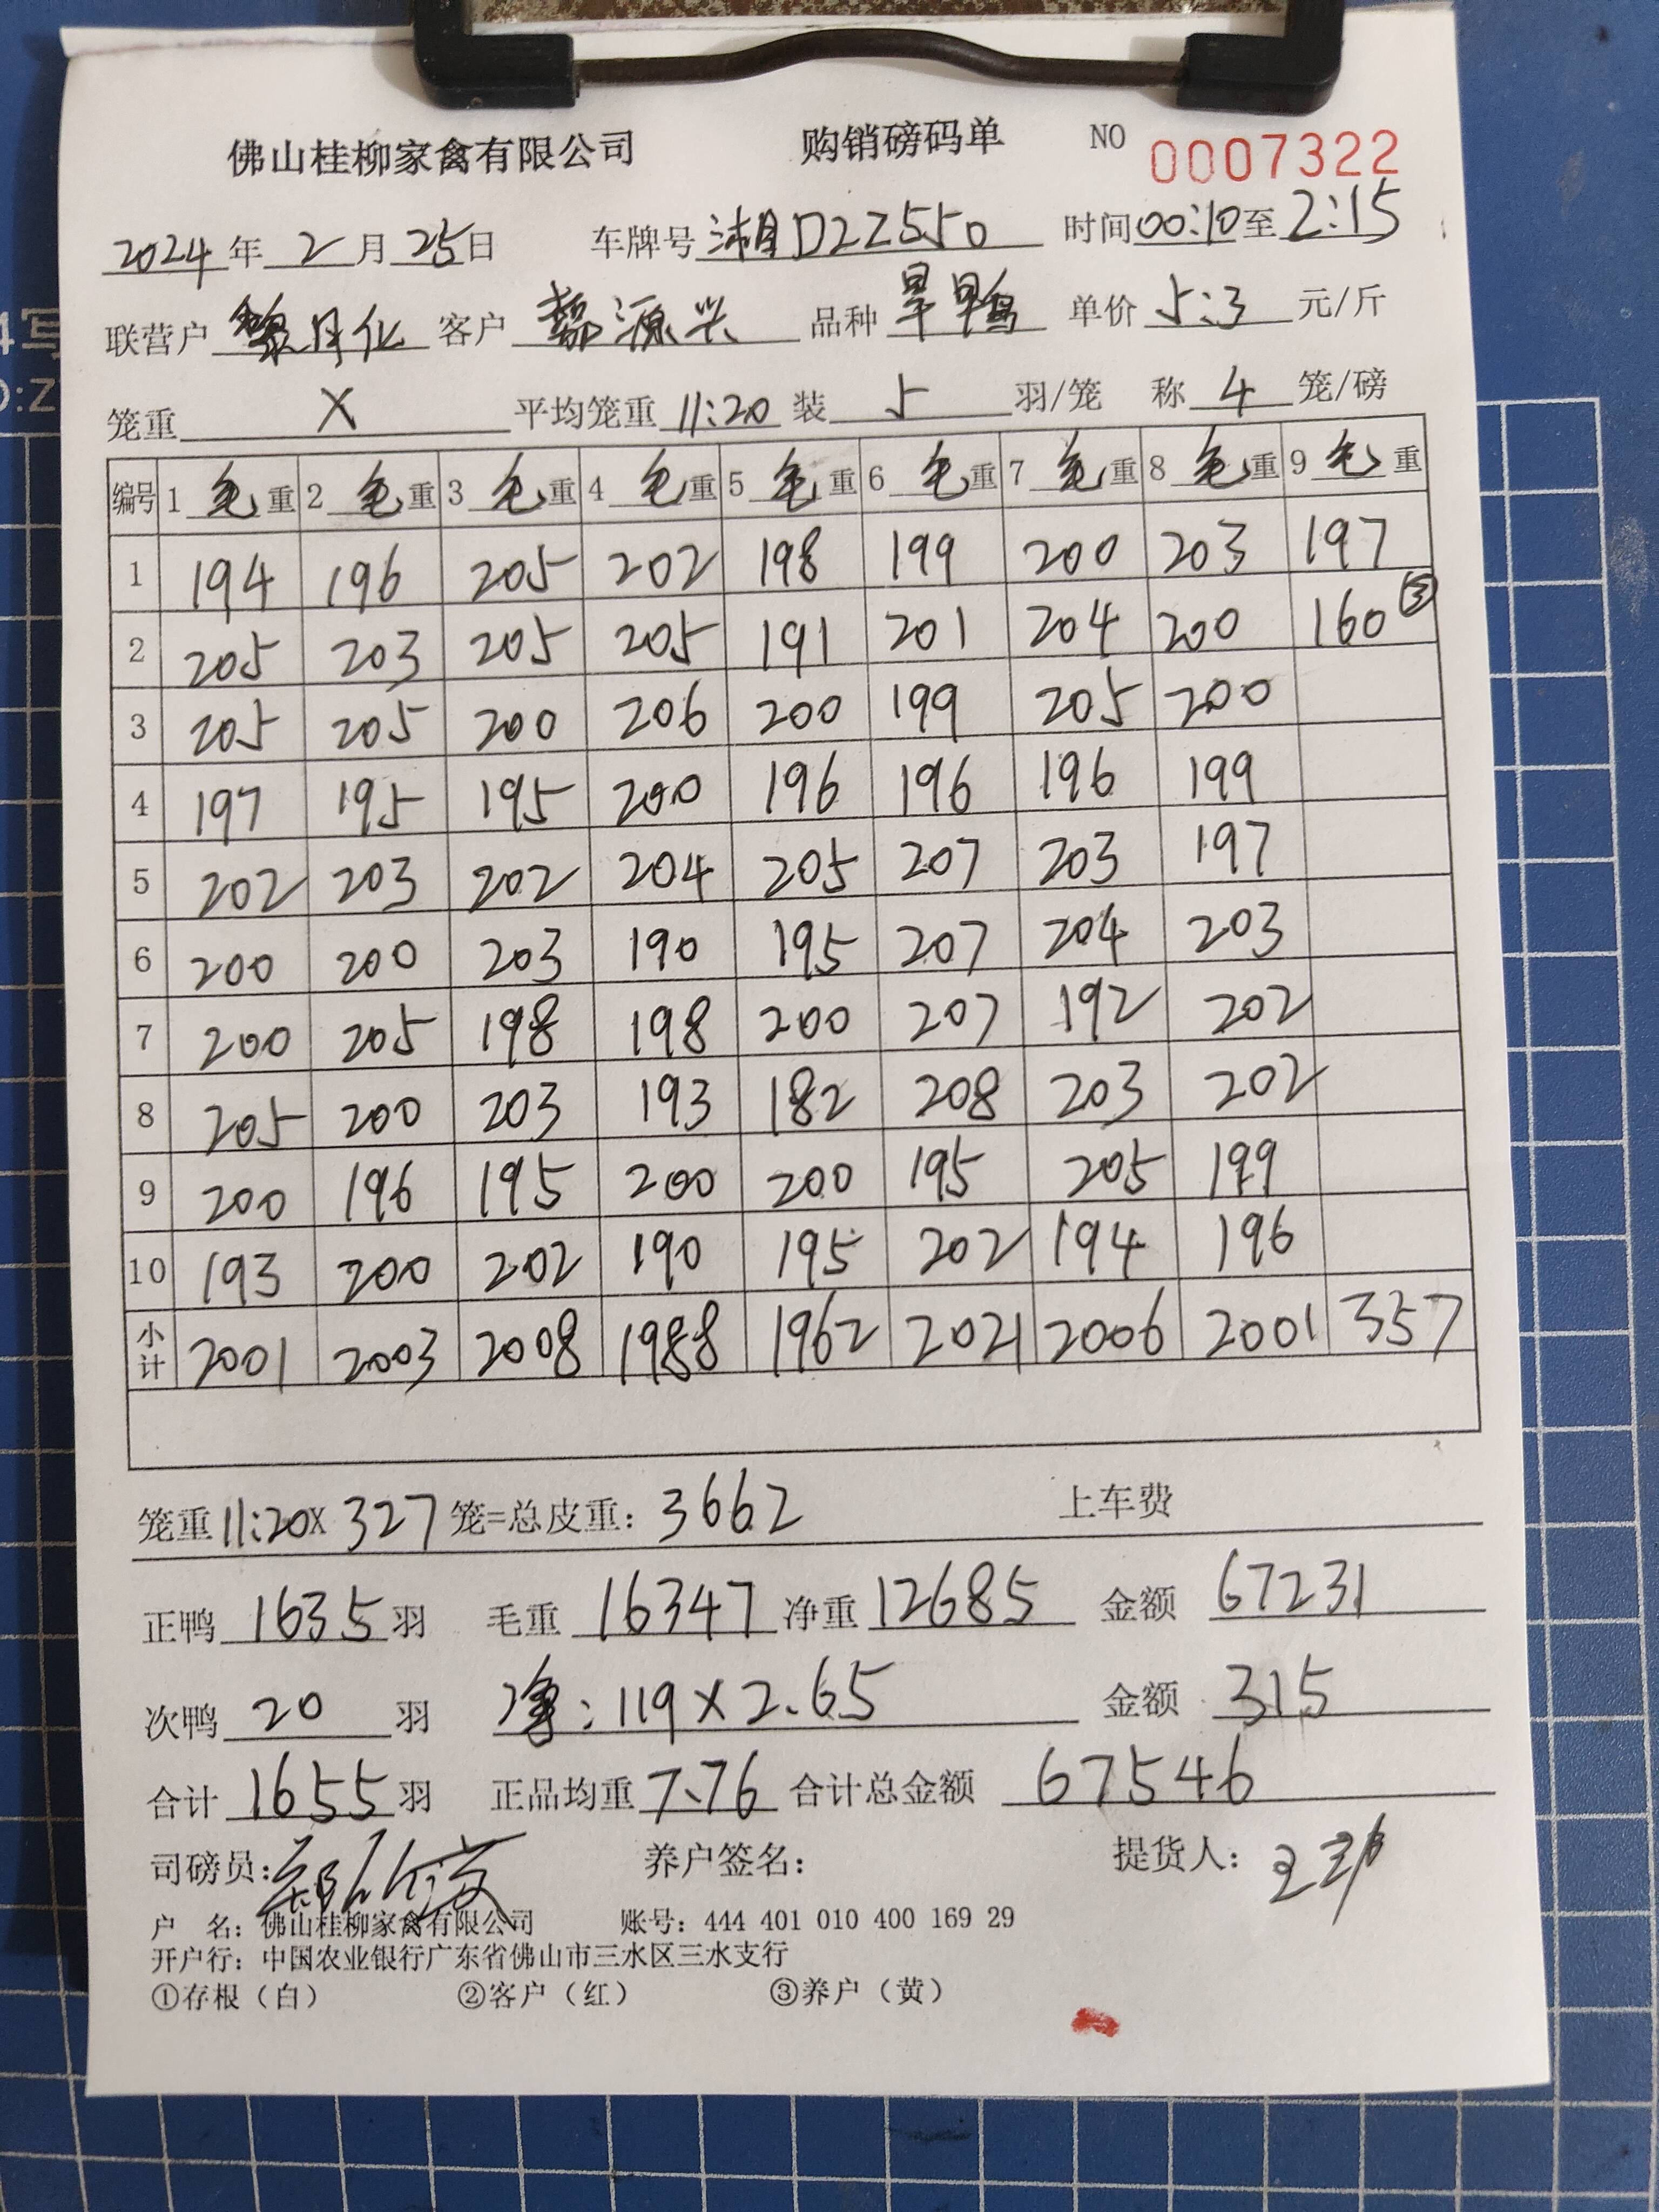 佛山桂柳家禽有限公司 购销磅码单 NO 0007322
2024年2月25日 车牌号 湖D2Z550 时间00:10至2:15
联营户 黎月化 客户 源兴 品种 旱鸭 单价 5:3 元/斤
笼重 X 平均笼重 11:20 装 5 羽/笼 称 4 笼/磅
编号 1 毛重 2 毛重 3 毛重 4 毛重 5 毛重 6 毛重 7 毛重 8 毛重 9 毛重
1 194 196 205 202 198 199 200 203 197
2 205 203 205 205 191 201 204 200 160 ③
3 205 205 200 206 200 199 205 200
4 197 195 195 200 196 196 196 199
5 202 203 202 204 205 207 203 197
6 200 200 203 190 195 207 204 203
7 200 205 198 198 200 207 192 202
8 205 200 203 193 182 208 203 202
9 200 196 195 200 200 195 205 199
10 193 200 202 190 195 202 194 196
小计 2001 2003 2008 1988 1962 2021 2006 2001 357
笼重 11:20X 327 笼=总皮重: 3662 上车费
正鸭 1635 羽 毛重 16347 净重 12685 金额 67231
次鸭 20 羽 净: 119×2.65 金额 315
合计 1655 羽 正品均重 7.76 合计总金额 67546
司磅员: 养户签名: 提货人:
户 名: 佛山桂柳家禽有限公司 账号: 444 401 010 400 169 29
开户行: 中国农业银行广东省佛山市三水区三水支行
①存根（白） ②客户（红） ③养户（黄）